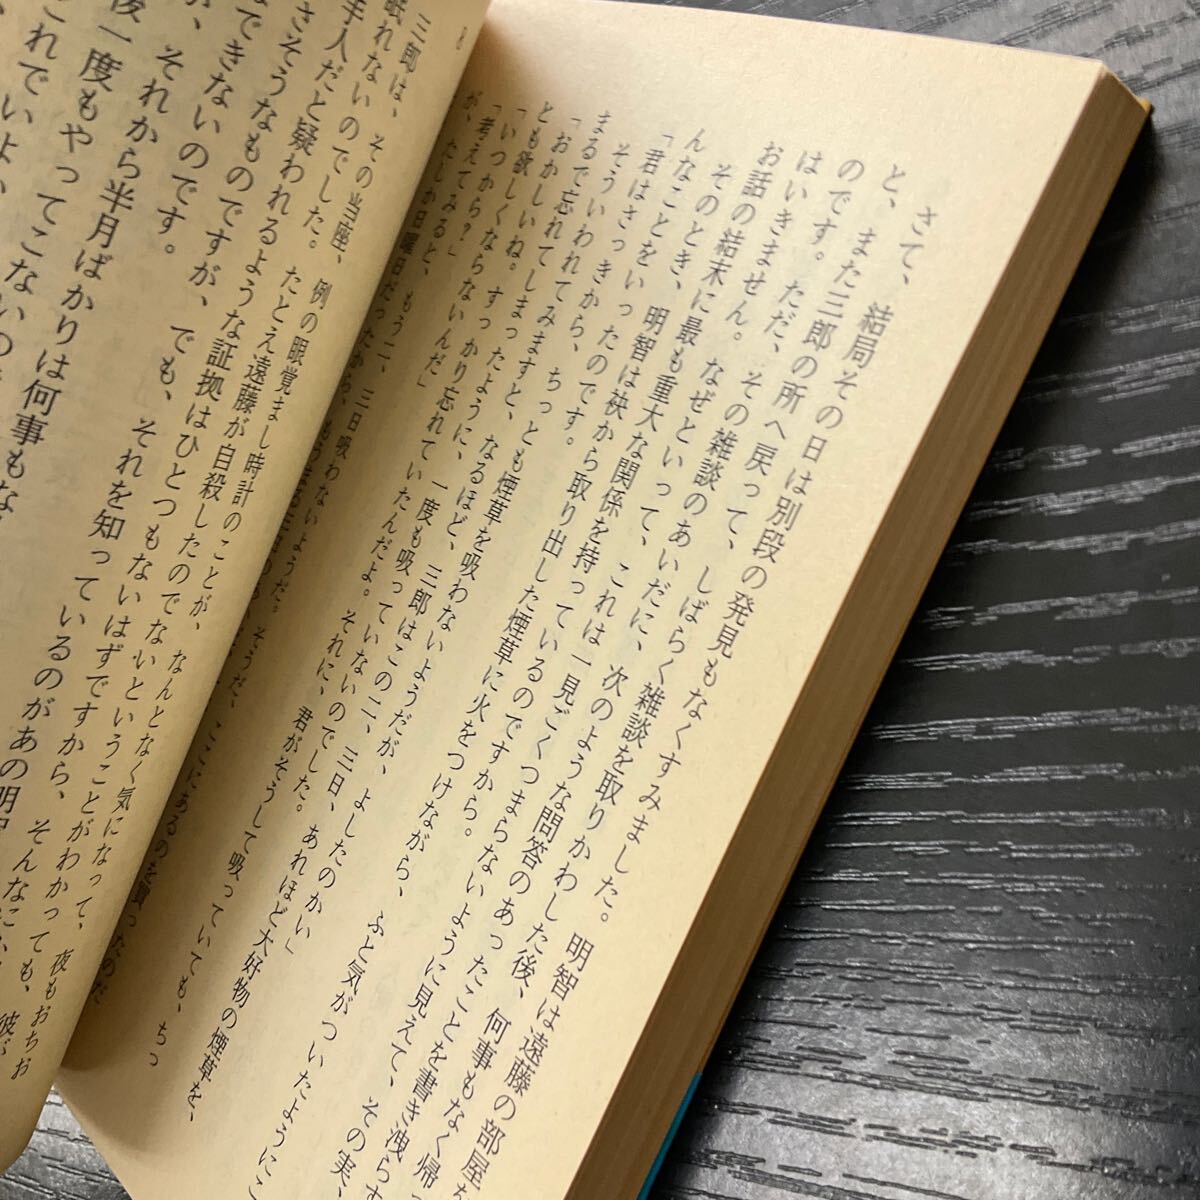 さて、結局その日は別段の発見もなくすみました。明智は遠藤の部屋を
と、また三郎の所へ戻って、しばらく雑談を取りかわした後、何事もなく帰っ
のです。ただ、その雑談のあいだに、次のような問答のあったことを書き洩らす
はいきません。なぜといって、これは一見ごくつまらないように見えて、その実、
お話の結末に最も重大な関係を持っているのですから。
そのとき、明智は袂から取り出した煙草に火をつけながら、ふと気がついたようにこ
んなことをいったのです。
「君はさっきから、ちっとも煙草を吸わないようだが、よしたのかい」
そういわれてみますと、なるほど、三郎はこの二、三日、あれほど大好物の煙草を、
まるで忘れてしまったように、一度も吸っていないのでした。
「おかしいね。すっかり忘れていたんだよ。それに、君がそうして吸っていても、ちっ
とも欲しくならないんだ」
「いつから？」
「考えてみると、もう二、三日吸わないようだ。そうだ、ここにあるのを買ったのが、
たしか日曜日だったから、
三郎は、その当座、例の眼覚まし時計のことが、なんとなく気になって、夜もおちお
眠れないのでした。たとえ遠藤が自殺したのでないということがわかっても、彼が
手人だと疑われるような証拠はひとつもないはずですから、そんなに
さそうなものですが、でも、それを知っているのがあの明
できないのです。
、それから半月ばかりは何事もな
後一度もやってこないの
これでいよ